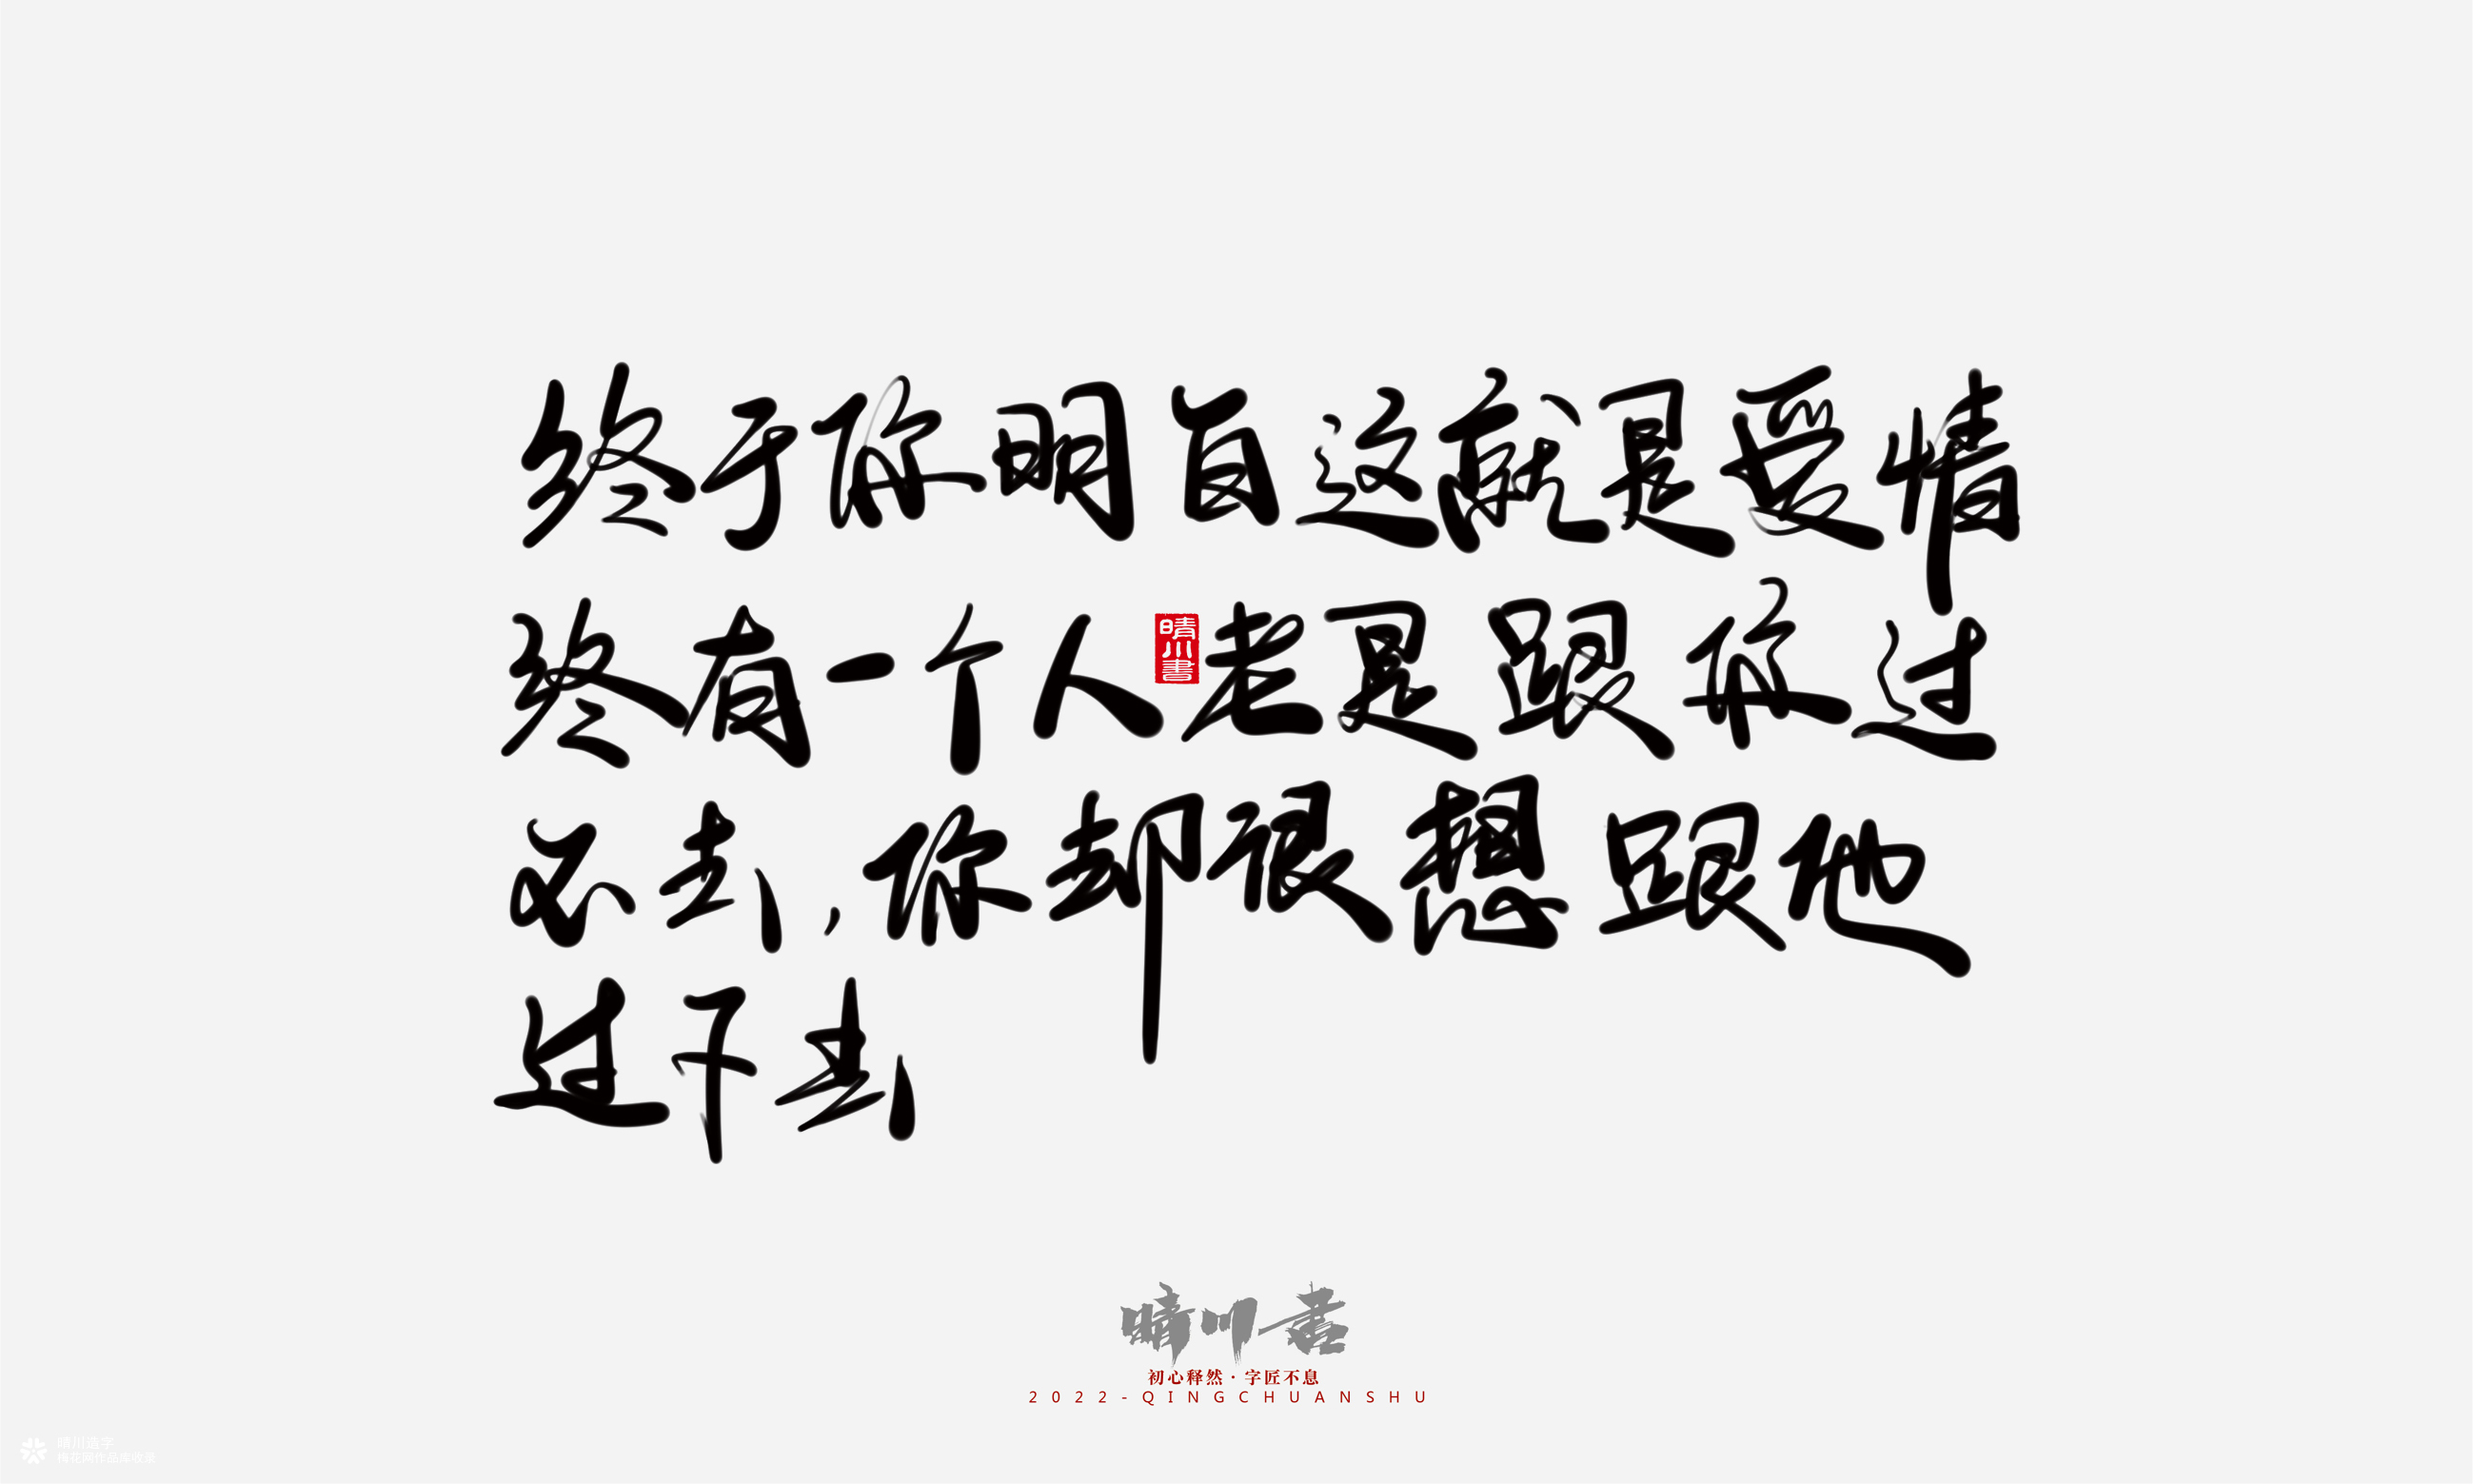 终于你明白这就是爱情
终有一个人老是跟你过
不去，你却很想跟他
过下去
晴川書
晴川書
初心释然·字匠不息
2022-QINGCHUANSHU
晴川造字
梅花网作品库收录